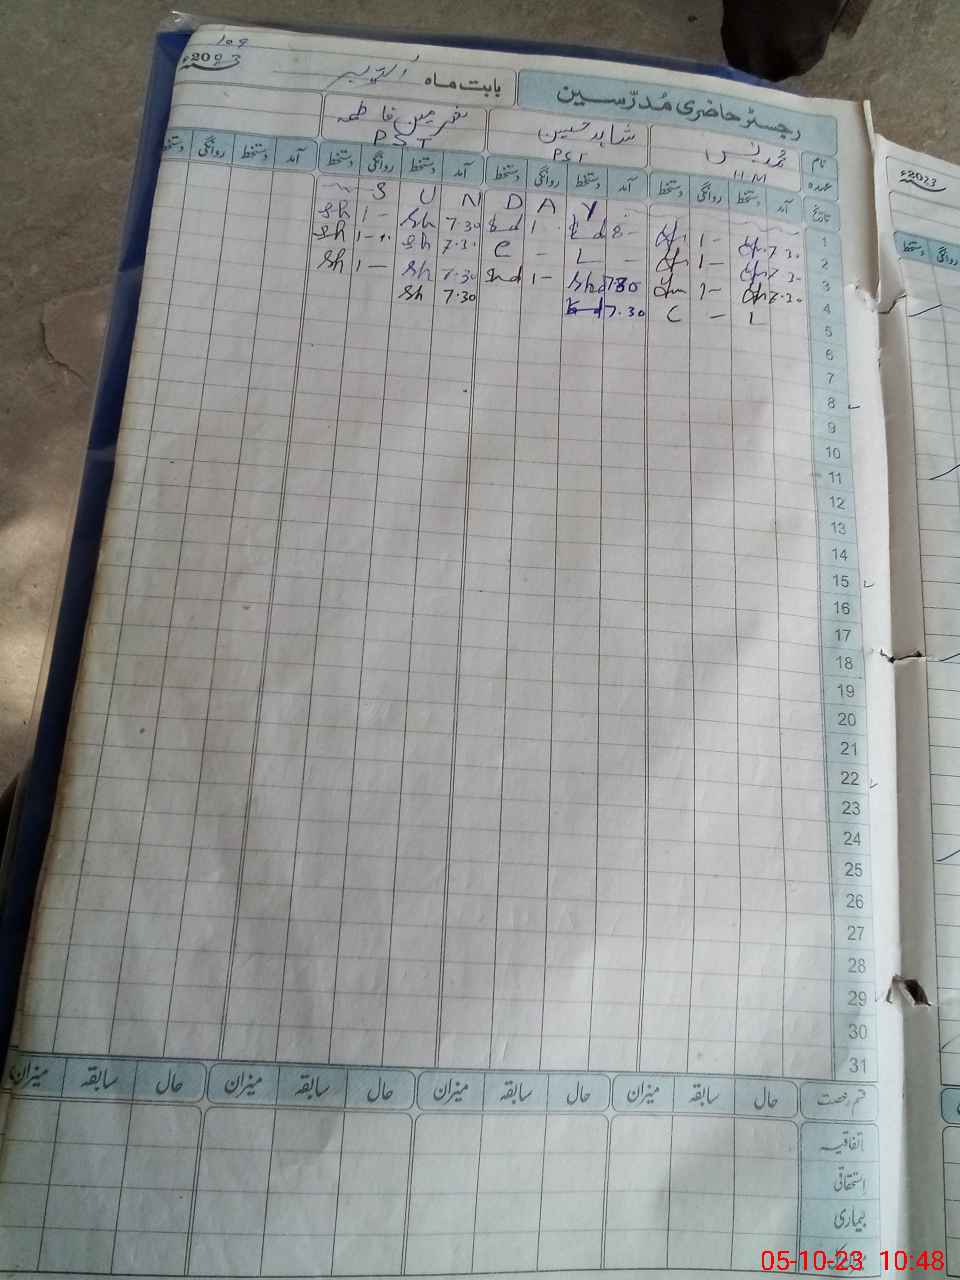 109
2023ء
بابت ماہ اکتوبر
رجسٹر حاضری مُدرّسین
نام
شاہد حسین
فاطمہ
عہدہ
H M
PST
PST
تاریخ
آمد دستخط روانگی دستخط آمد دستخط روانگی دستخط آمد دستخط روانگی دستخط آمد دستخط روانگی دستخط
S U N D A Y
1
7.30 1- 8- 1 7.30 Sh 1- Sh
2
7.30 1- C - L - 7.30 Sh 1- Sh
3
7.30 1- 7.30 1- 7.30 Sh 1- Sh
4
C - L 7.30 7.30 Sh
5
6
7
8
9
10
11
12
13
14
15
16
17
18
19
20
21
22
23
24
25
26
27
28
29
30
31
قسم رخصت حال سابقہ میزان حال سابقہ میزان حال سابقہ میزان حال سابقہ میزان
اتفاقیہ
استحقاقی
بیماری
2023ء
دستخط روانگی
05-10-23 10:48